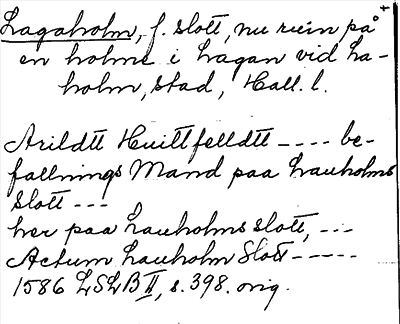 Lagaholm, f. slott, nu ruin på +
en holme i Lagan vid La-
holm, stad, Hall. l.
Arildtt Huittfelldtt ---- be-
fallnings Mand paa Lauholms
slott ---
her paa Lauholms slott, ---
Actum Lauholm Slott -----
1586 LSLB II, s. 398. orig.